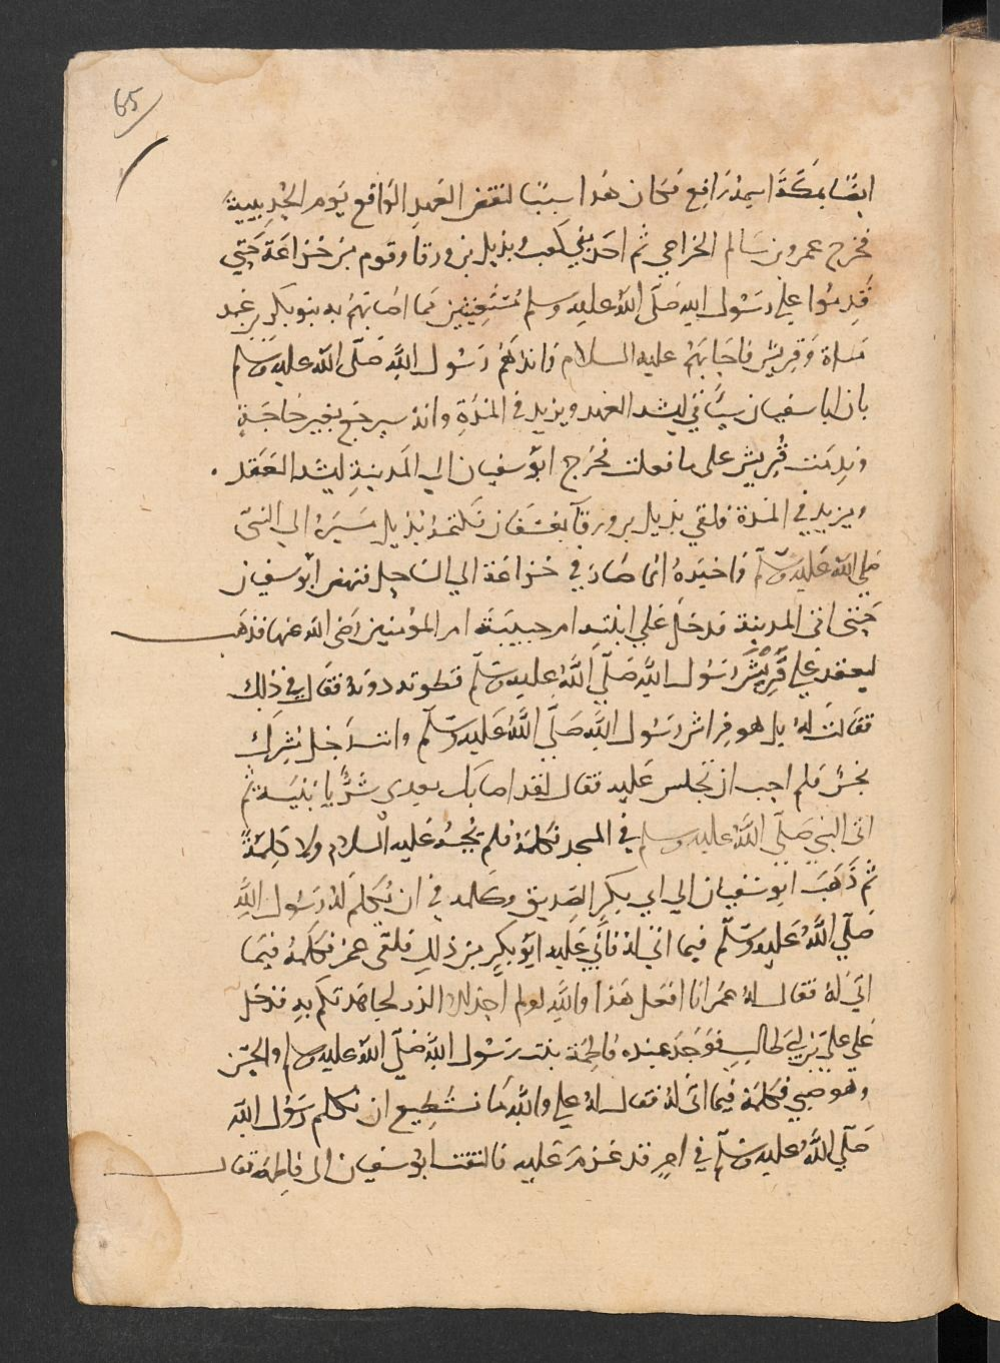 65
ايضًا بمكة اسمه رافع فكان هذا سببًا لنقض العهد الواقع يوم الحديبية
فخرج عمرو بن سالم الخزاعي ثم احد بني كعب وبديل بن ورقا وقوم من خزاعة حتي
قدموا علي رسول الله صَلّى الله عليه وسلم مستغيثين مما اصابهم به بنو بكر بن عبد
مناة وقريش فاجابهم عليه السلام وانذرهم رسول الله صَلّى الله عليه وسلم
بان ابا سفيان سيأتي ليشد العهد ويزيد في المدة وانه سيرجع بغير حاجة
وندمت قريش على ما فعلت فخرج ابو سفيان الي المدينة ليشد العقد
ويزيد في المدة فلقي بديل بن ورقآ بعسفان فكتمه بديل مسيره الي النبي
صلي الله عليه وسلم واخبره انما صار في خزاعة الي الساحل فنهض ابو سفيان
حتى اتى المدينة فدخل علي ابنته ام حبيبة ام المؤمنين رضى الله عنها فذهب
ليقعد علي فرش رسول الله صَلّي اللَّه عليه وسَلّم فطوته دونه فقال في ذلك
فقالت له بل هو فراش رسول الله صَلّي اللَّه عَليه وسَلّم وانت رجل مشرك
نجس فلم احب ان تجلس عليه فقال لقد اصابك بعدى شرٌّ يا بنيـة ثم
اتى النبي صَلّي اللَّه عليه وسلم في المسجد فكلمه فلم يجبه عليه السلام ولا كلمةً
ثم ذَهَبَ ابو سفيان الي ابي بكرٍ الصديق وكلمه في ان يُكلم له رسول الله
صَلّي اللَّه عَليه وسَلّم فيما اتى له فأبي عَليه ابو بكرٍ من ذلك فلقى عمر فكلمه فيما
اتى له فقال له عمر انا افعل هذا والله لو لم اجد الا الذر لجاهدتكم به فدخل
علي علي بن ابي طالبٍ فوجد عنده فاطمة بنت رسول الله صَلّى الله عليه وسلم والحسن
وهو صبي فكلمه فيما اتى له فقال له علي والله ما نستطيع ان نكلم رسول الله
صَلّي اللَّه عليه وسَلّم في امرٍ قد عزم عليه فالتفت ابو سفيان الى فاطمة فقال